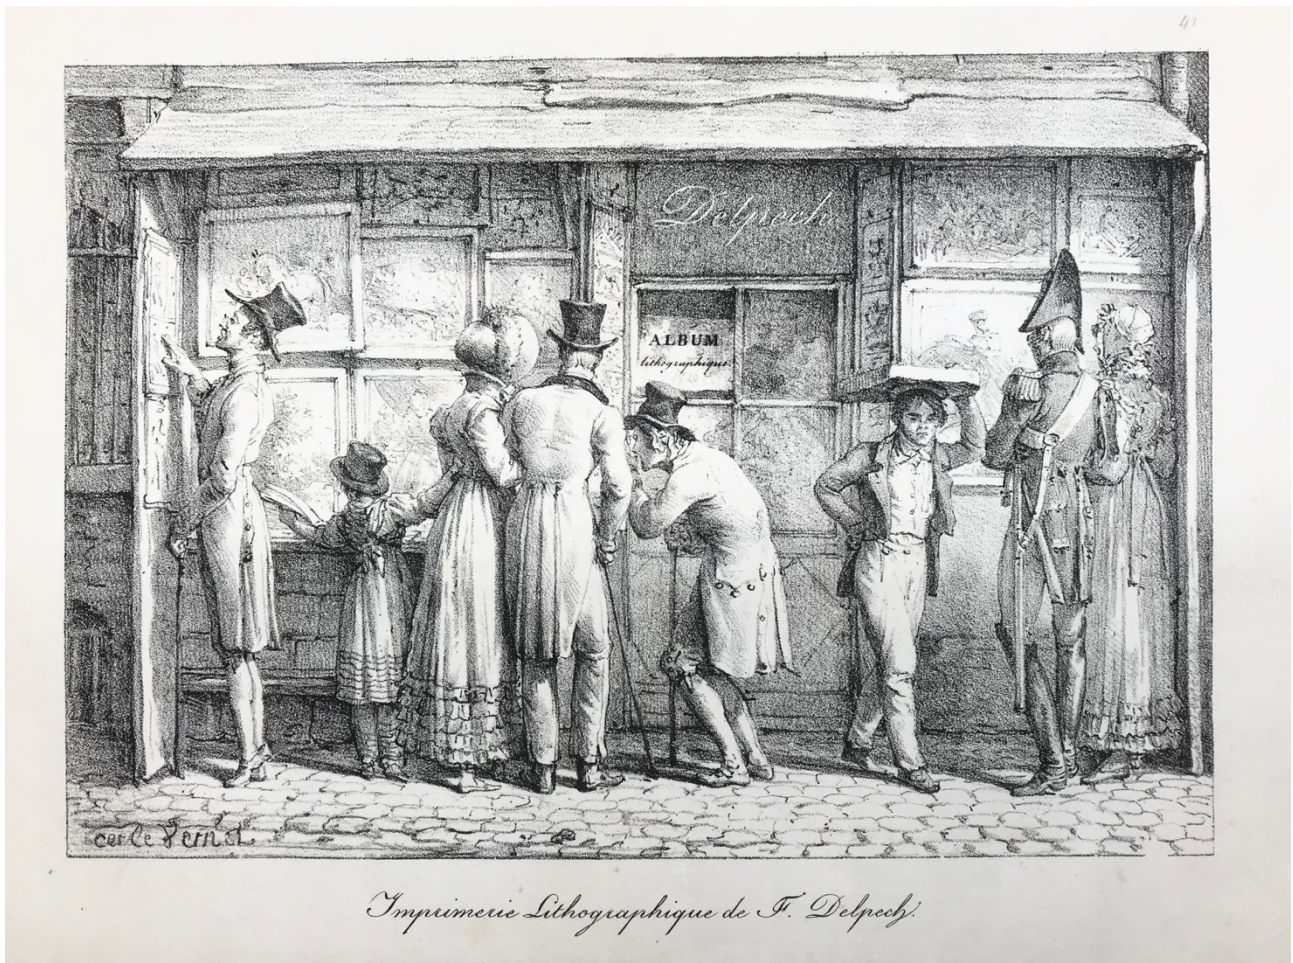 41
Delpech
ALBUM
lithographique.
carle Vernet
Imprimerie Lithographique de F. Delpech.